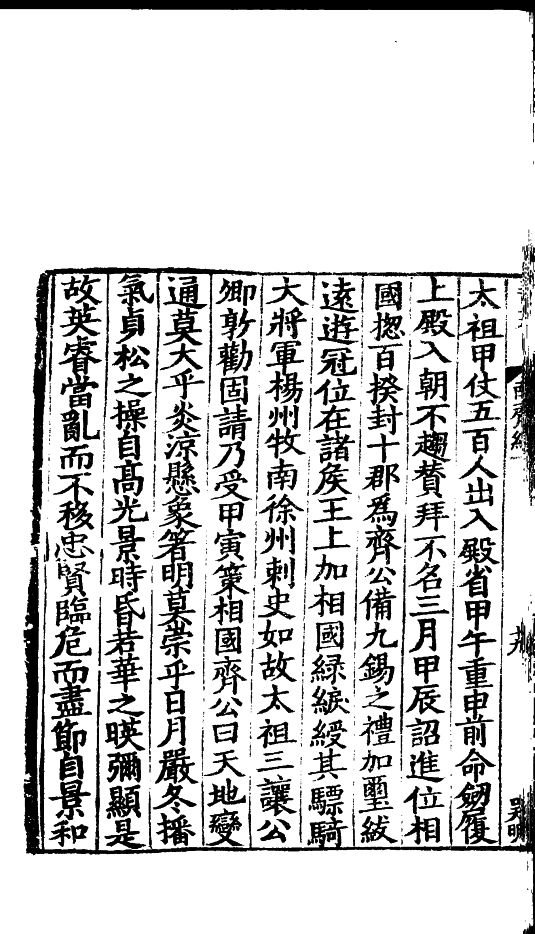 太祖甲仗五百人出入殿省甲午重申前命劒履
上殿入朝不趨賛拜不名三月甲辰詔進位相
國揔百揆封十郡爲齊公備九錫之禮加璽紱
遠遊冠位在諸矦王上加相國緑綟綬其驃騎
大將軍楊州牧南徐州刺史如故太祖三讓公
卿敦勸固請乃受甲寅策相國齊公曰天地變
通莫大乎炎凉懸象箸明莫崇乎日月嚴冬播
氣貞松之操自髙光景時昏若華之暎彌顯是
故英睿當亂而不移忠賢臨危而盡節自景和